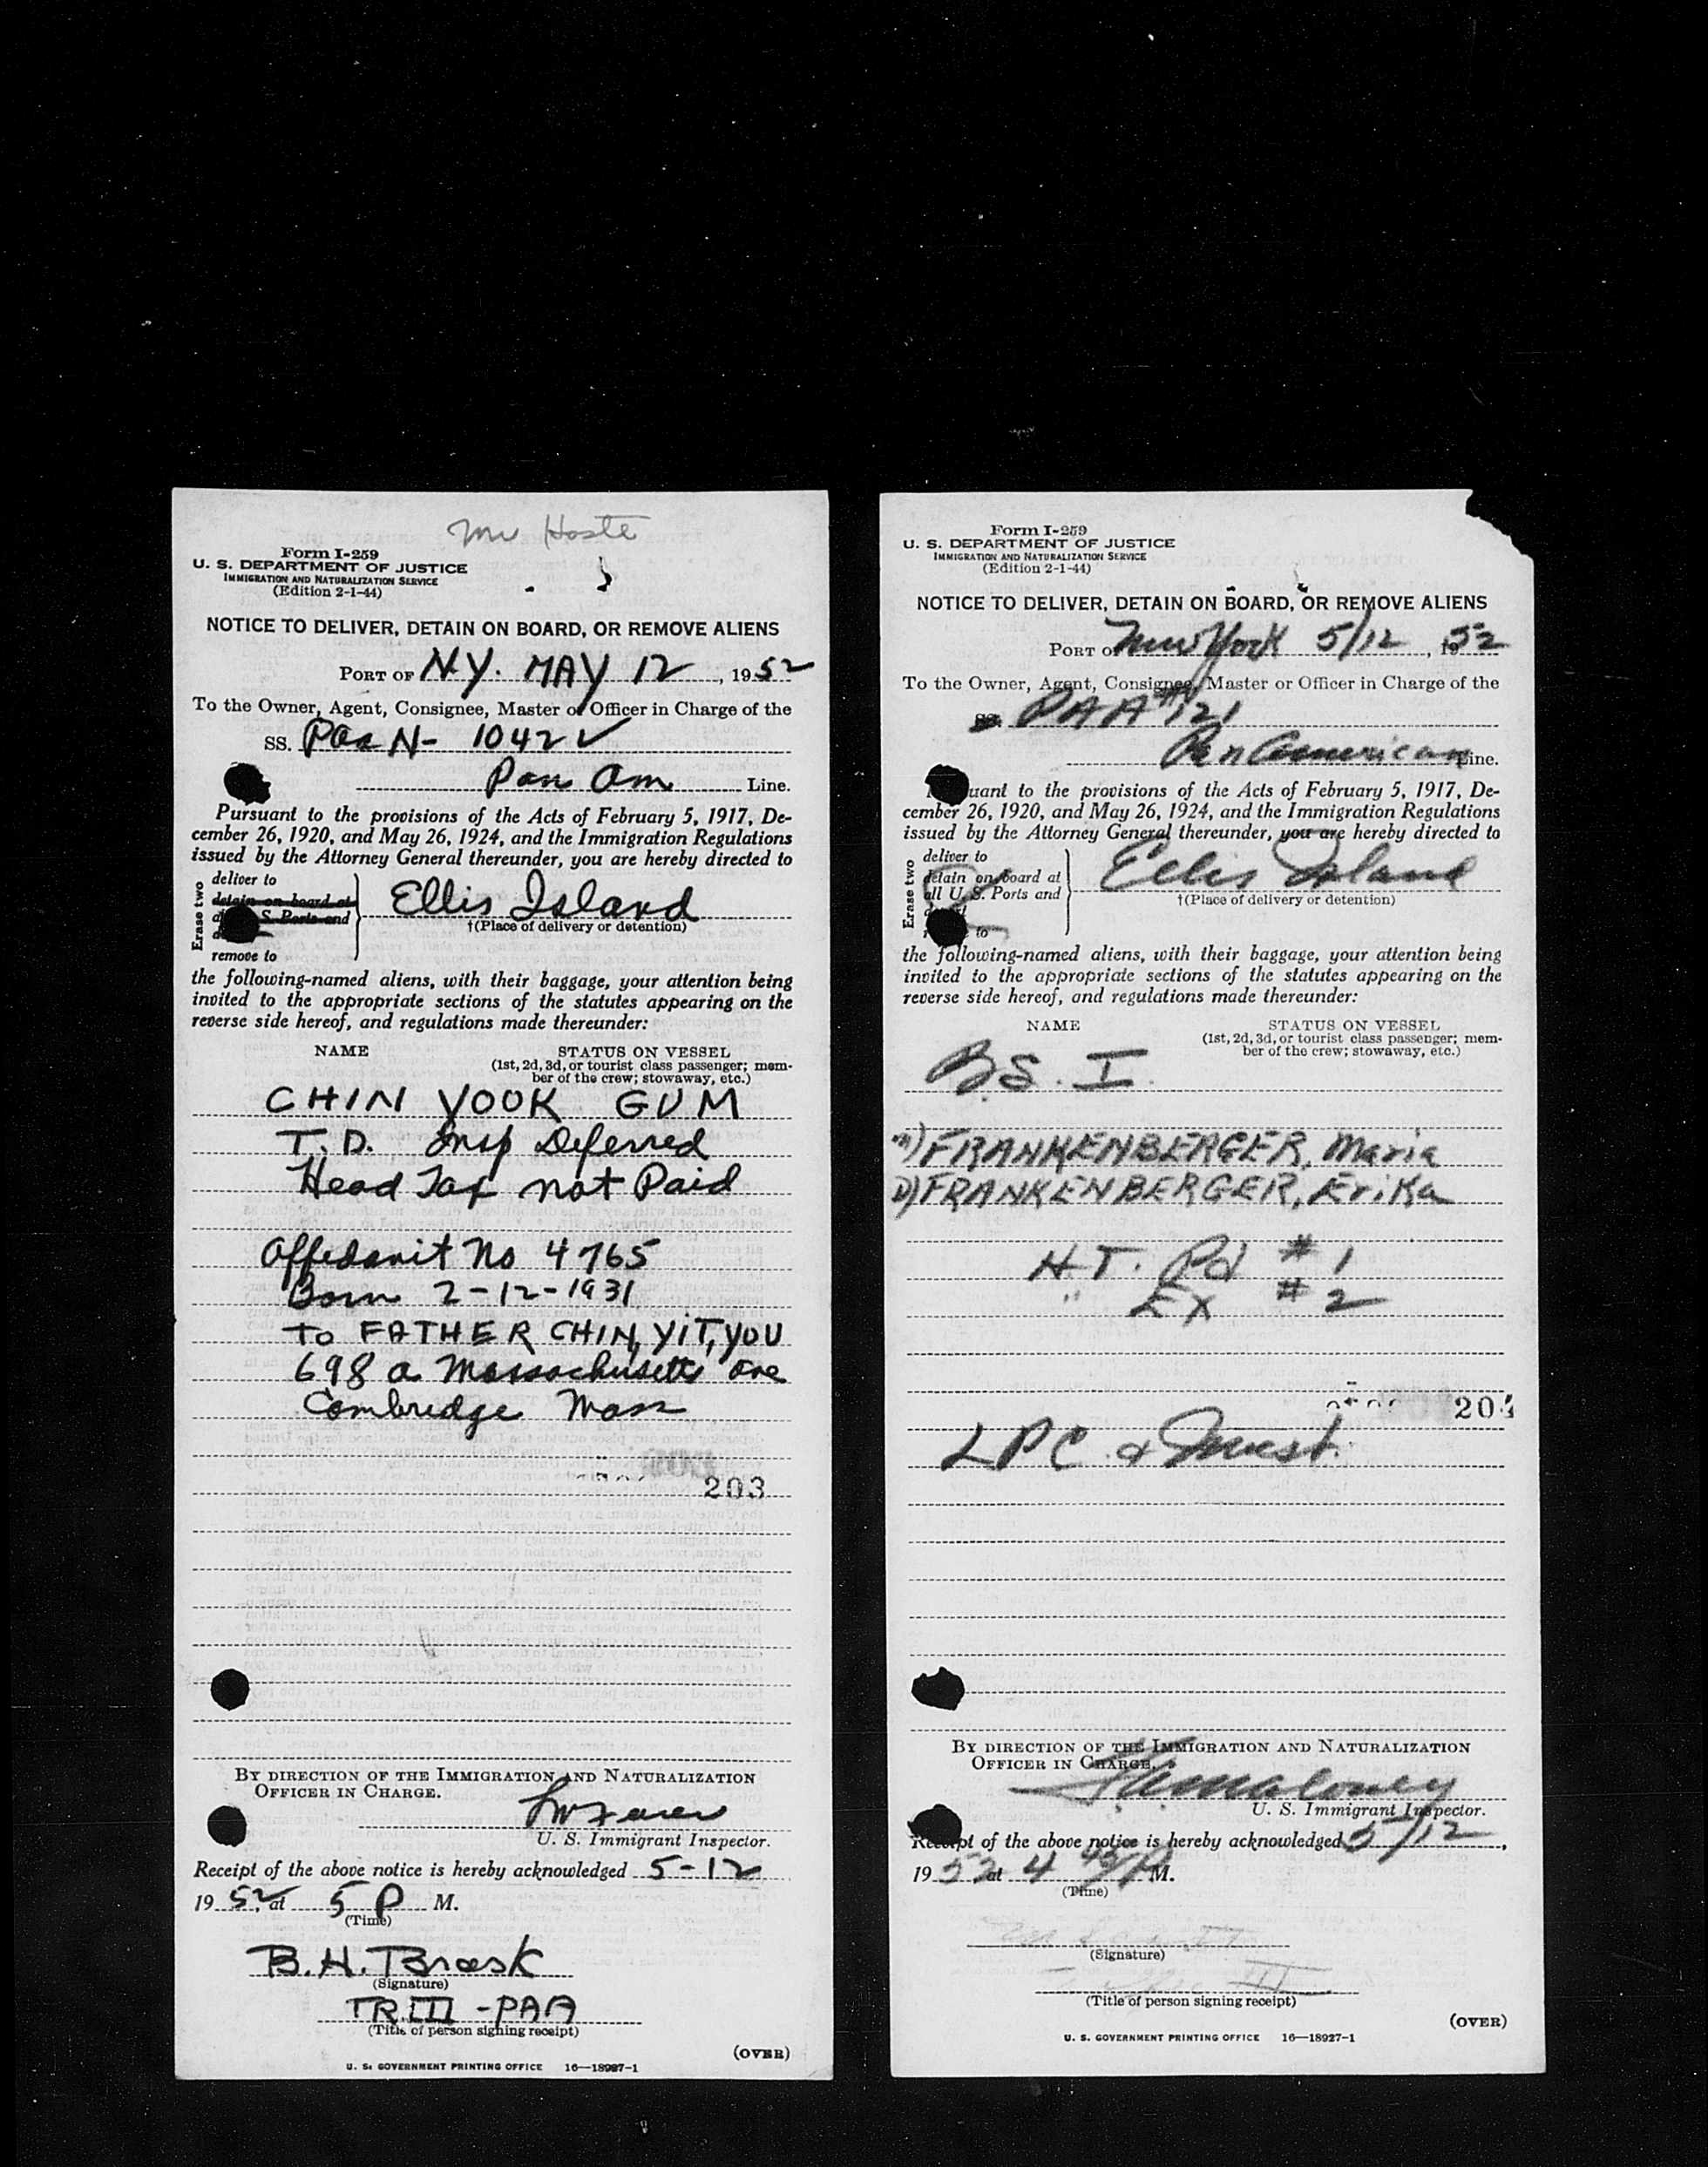 Mr Hoste
Form I-259
U. S. DEPARTMENT OF JUSTICE
IMMIGRATION AND NATURALIZATION SERVICE
(Edition 2-1-44)
NOTICE TO DELIVER, DETAIN ON BOARD, OR REMOVE ALIENS
PORT OF N.Y. MAY 12, 1952
To the Owner, Agent, Consignee, Master or Officer in Charge of the
SS. Paa N- 1042 V
Pan Am Line.
Pursuant to the provisions of the Acts of February 5, 1917, De-
cember 26, 1920, and May 26, 1924, and the Immigration Regulations
issued by the Attorney General thereunder, you are hereby directed to
Erase two
deliver to
detain on board at
S. Ports and
remove to
Ellis Island
†(Place of delivery or detention)
the following-named aliens, with their baggage, your attention being
invited to the appropriate sections of the statutes appearing on the
reverse side hereof, and regulations made thereunder:
NAME STATUS ON VESSEL
(1st, 2d, 3d, or tourist class passenger; mem-
ber of the crew; stowaway, etc.)
CHIN YOOK GUM
T.D. Insp Deferred
Head Tax not Paid
Affedavit No 4765
Born 2-12-1931
To FATHER CHIN, YIT, YOU
698 a Massachusetts ave
Cambridge Mass
203
BY DIRECTION OF THE IMMIGRATION AND NATURALIZATION
OFFICER IN CHARGE.
U. S. Immigrant Inspector.
Receipt of the above notice is hereby acknowledged 5-12
1952, at 5 P M.
(Time)
B.H. Brask
(Signature)
TR.III -PAA
(Title of person signing receipt)
(OVER)
U. S. GOVERNMENT PRINTING OFFICE 16—18927-1
Form I-259
U. S. DEPARTMENT OF JUSTICE
IMMIGRATION AND NATURALIZATION SERVICE
(Edition 2-1-44)
NOTICE TO DELIVER, DETAIN ON BOARD, OR REMOVE ALIENS
PORT OF New York 5/12, 1952
To the Owner, Agent, Consignee, Master or Officer in Charge of the
SS. PAA #121
Pan American Line.
Pursuant to the provisions of the Acts of February 5, 1917, De-
cember 26, 1920, and May 26, 1924, and the Immigration Regulations
issued by the Attorney General thereunder, you are hereby directed to
Erase two
deliver to
detain on board at
all U. S. Ports and
to
Ellis Island
†(Place of delivery or detention)
the following-named aliens, with their baggage, your attention being
invited to the appropriate sections of the statutes appearing on the
reverse side hereof, and regulations made thereunder:
NAME STATUS ON VESSEL
(1st, 2d, 3d, or tourist class passenger; mem-
ber of the crew; stowaway, etc.)
B.S.I.
FRANKENBERGER, Maria
FRANKENBERGER, Erika
H.T. Pd #1
" Ex #2
204
LPC &
BY DIRECTION OF THE IMMIGRATION AND NATURALIZATION
OFFICER IN CHARGE.
Maloney
U. S. Immigrant Inspector.
Receipt of the above notice is hereby acknowledged 5/12,
1952 at 4 M.
(Time)
(Signature)
(Title of person signing receipt)
(OVER)
U. S. GOVERNMENT PRINTING OFFICE 16—18927-1